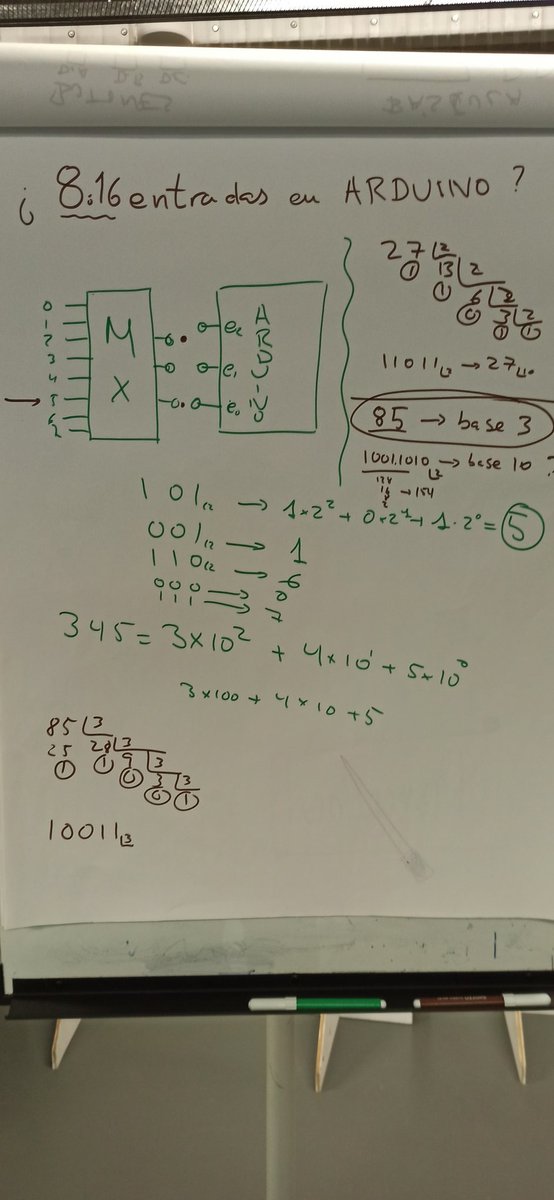 ¿ 8:16 entradas en ARDUINO ?
0
1
2
3
4
5
6
7
MX
e₂
e₁
e₀
ARDUINO
27 |2
1 13 |2
1 6 |2
0 3 |2
1 1
11011|2 → 27|10
85 → base 3
1001.1010|2 → base 10 ?
128
16
8
2
→ 154
101|2 → 1×2² + 0×2¹ + 1·2⁰ = 5
001|2 → 1
110|2 → 6
000 → 0
111 → 7
345 = 3×10² + 4×10¹ + 5×10⁰
3×100 + 4×10 + 5
85 |3
25 28 |3
1 1 9 |3
0 3 |3
0 1
10011|3